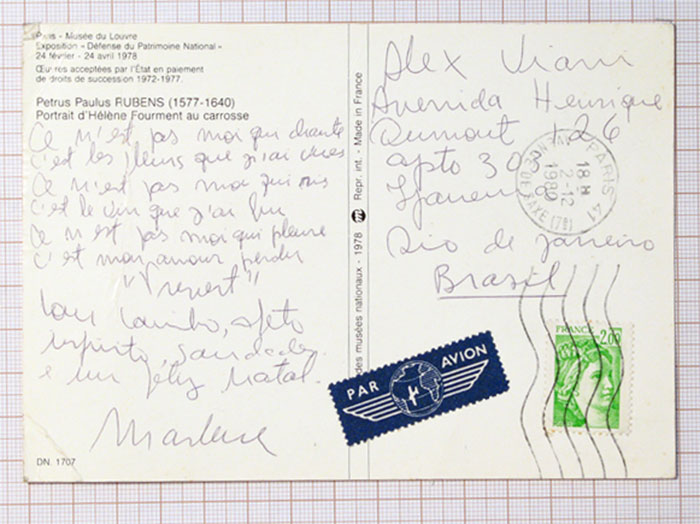 Paris - Musée du Louvre
Exposition « Défense du Patrimoine National »
24 février - 24 avril 1978
Œuvres acceptées par l'État en paiement
de droits de succession 1972-1977.
Petrus Paulus RUBENS (1577-1640)
Portrait d'Hélène Fourment au carrosse
Ce n'est pas moi qui chante
c'est les fleurs que j'ai vues
Ce n'est pas moi qui ris
c'est le vin que j'ai bu
Ce n'est pas moi qui pleure
c'est mon amour perdu
"Prevert"
Com carinho, afeto
infinito, saudades
e um feliz natal.
Marlene
DN. 1707
des musées nationaux - 1978
Repr. int. - Made in France
Alex Viany
Avenida Henrique
Dumont 126
apto 303
Ipanema
Rio de janeiro
Brasil
PARIS 41
18 H
2-12
1980
AVENUE DE SAXE (7E)
PAR AVION
FRANCE
2,00